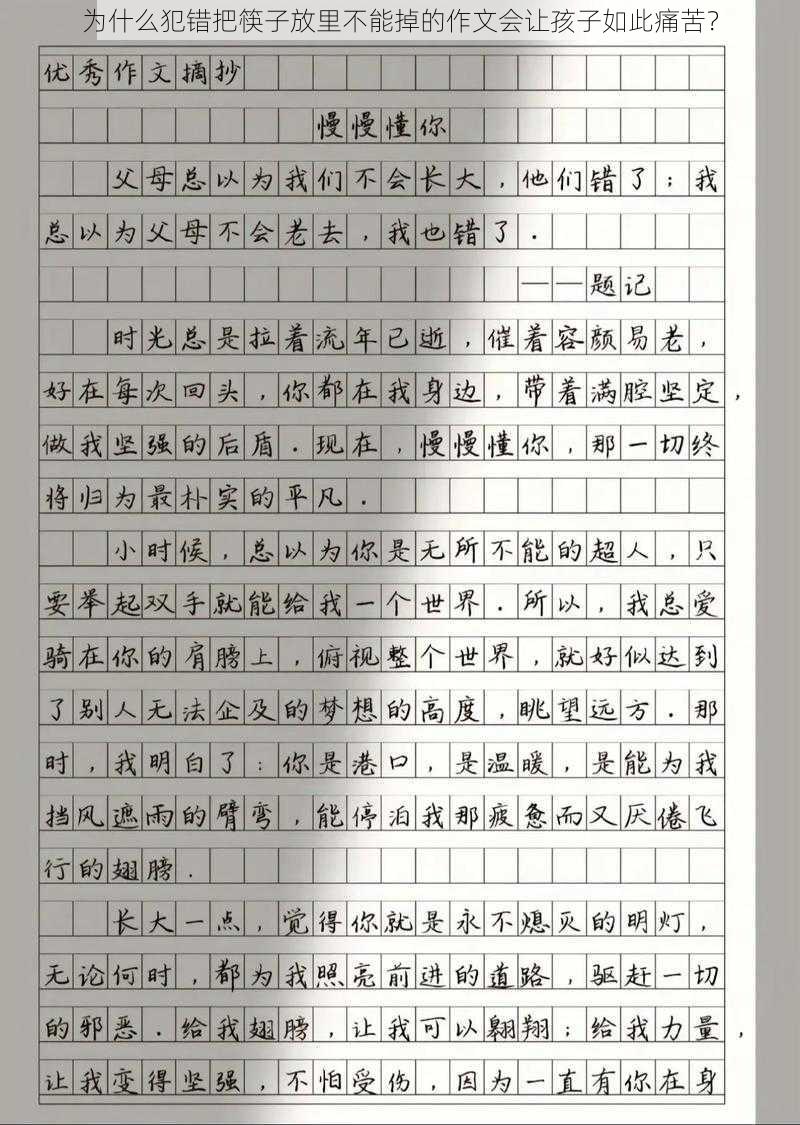 为什么犯错把筷子放里不能掉的作文会让孩子如此痛苦？
优秀作文摘抄
慢慢懂你
父母总以为我们不会长大，他们错了；我
总以为父母不会老去，我也错了．
——题记
时光总是拉着流年已逝，催着容颜易老，
好在每次回头，你都在我身边，带着满腔坚定，
做我坚强的后盾．现在，慢慢懂你，那一切终
将归为最朴实的平凡．
小时候，总以为你是无所不能的超人，只
要举起双手就能给我一个世界．所以，我总爱
骑在你的肩膀上，俯视整个世界，就好似达到
了别人无法企及的梦想的高度，眺望远方．那
时，我明白了：你是港口，是温暖，是能为我
挡风遮雨的臂弯，能停泊我那疲惫而又厌倦飞
行的翅膀．
长大一点，觉得你就是永不熄灭的明灯，
无论何时，都为我照亮前进的道路，驱赶一切
的邪恶．给我翅膀，让我可以翱翔；给我力量，
让我变得坚强，不怕受伤，因为一直有你在身